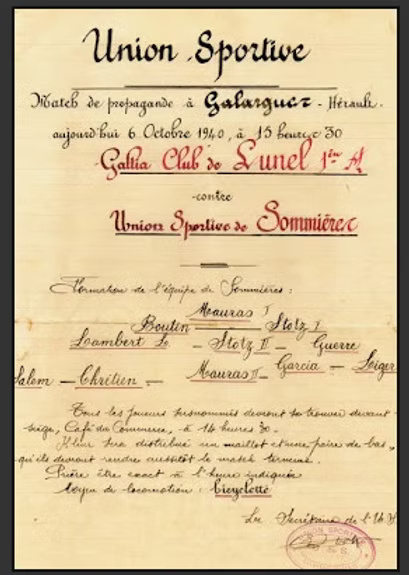 Union Sportive
Match de propagande à Galargues - Hérault.
aujourd'hui 6 Octobre 1940, à 15 heures 30
Gallia Club de Lunel 1ère A
contre
Union Sportive de Sommières
Formation de l'équipe de Sommières :
Mauras I
Boutin Stolz I
Lambert L. - Stolz II - Guerre
Salem - Chrétien - Mauras II - Garcia - Leiger
Tous les joueurs susnommés devront se trouver devant
siège, Café du Commerce, à 14 heures 30.
Il leur sera distribué un maillot et une paire de bas,
qu'ils devront rendre aussitôt le match terminé.
Prière être exact à l'heure indiquée
Moyen de locomotion : bicyclette
Le Secrétaire de l'U.S.